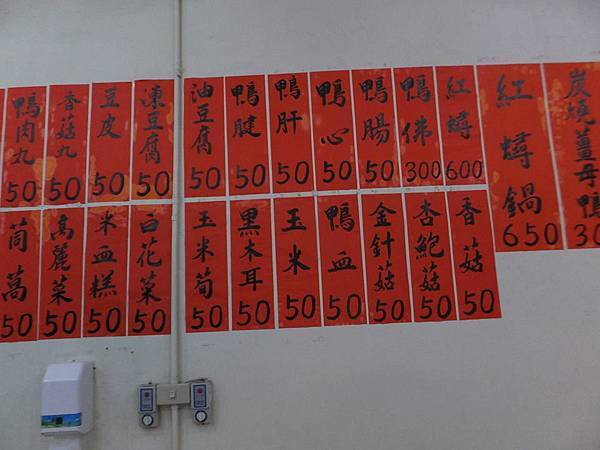 炭燒薑母鴨 30
紅蟳鍋 650
紅蟳 600
鴨佛 300
鴨腸 50
鴨心 50
鴨肝 50
鴨腱 50
油豆腐 50
凍豆腐 50
豆皮 50
香菇丸 50
鴨肉丸 50
香菇 50
杏鮑菇 50
金針菇 50
鴨血 50
玉米 50
黑木耳 50
玉米筍 50
白花菜 50
米血糕 50
高麗菜 50
茼萵 50